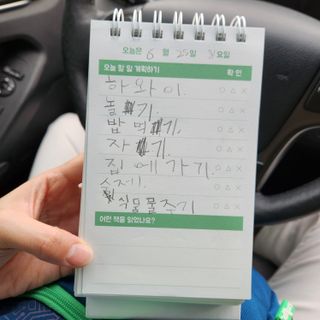 오늘은 6 월 25 일 요일
오늘 할 일 계획하기 확 인
하와이.
놀기.
밥먹기.
자기.
집에가기.
숙제.
식물물주기
어떤 책을 읽었나요?